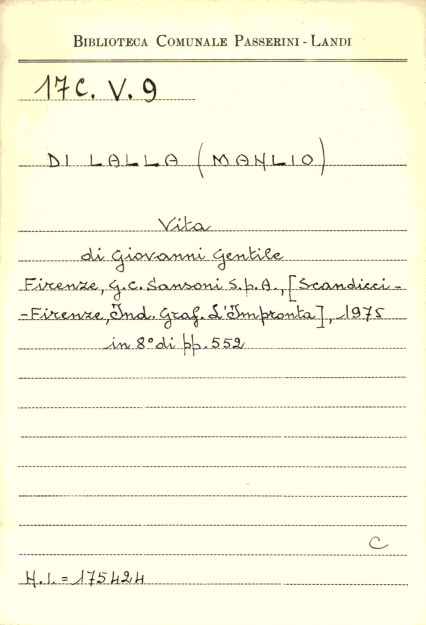 BIBLIOTECA COMUNALE PASSERINI - LANDI
17C. V. 9
DI LALLA (MANLIO)
Vita
di Giovanni Gentile
Firenze, G.C. Sansoni S.p.A., [Scandicci -
-Firenze, Ind. Graf. L'Impronta], 1975
in 8° di pp. 552
C
N.I. = 175424